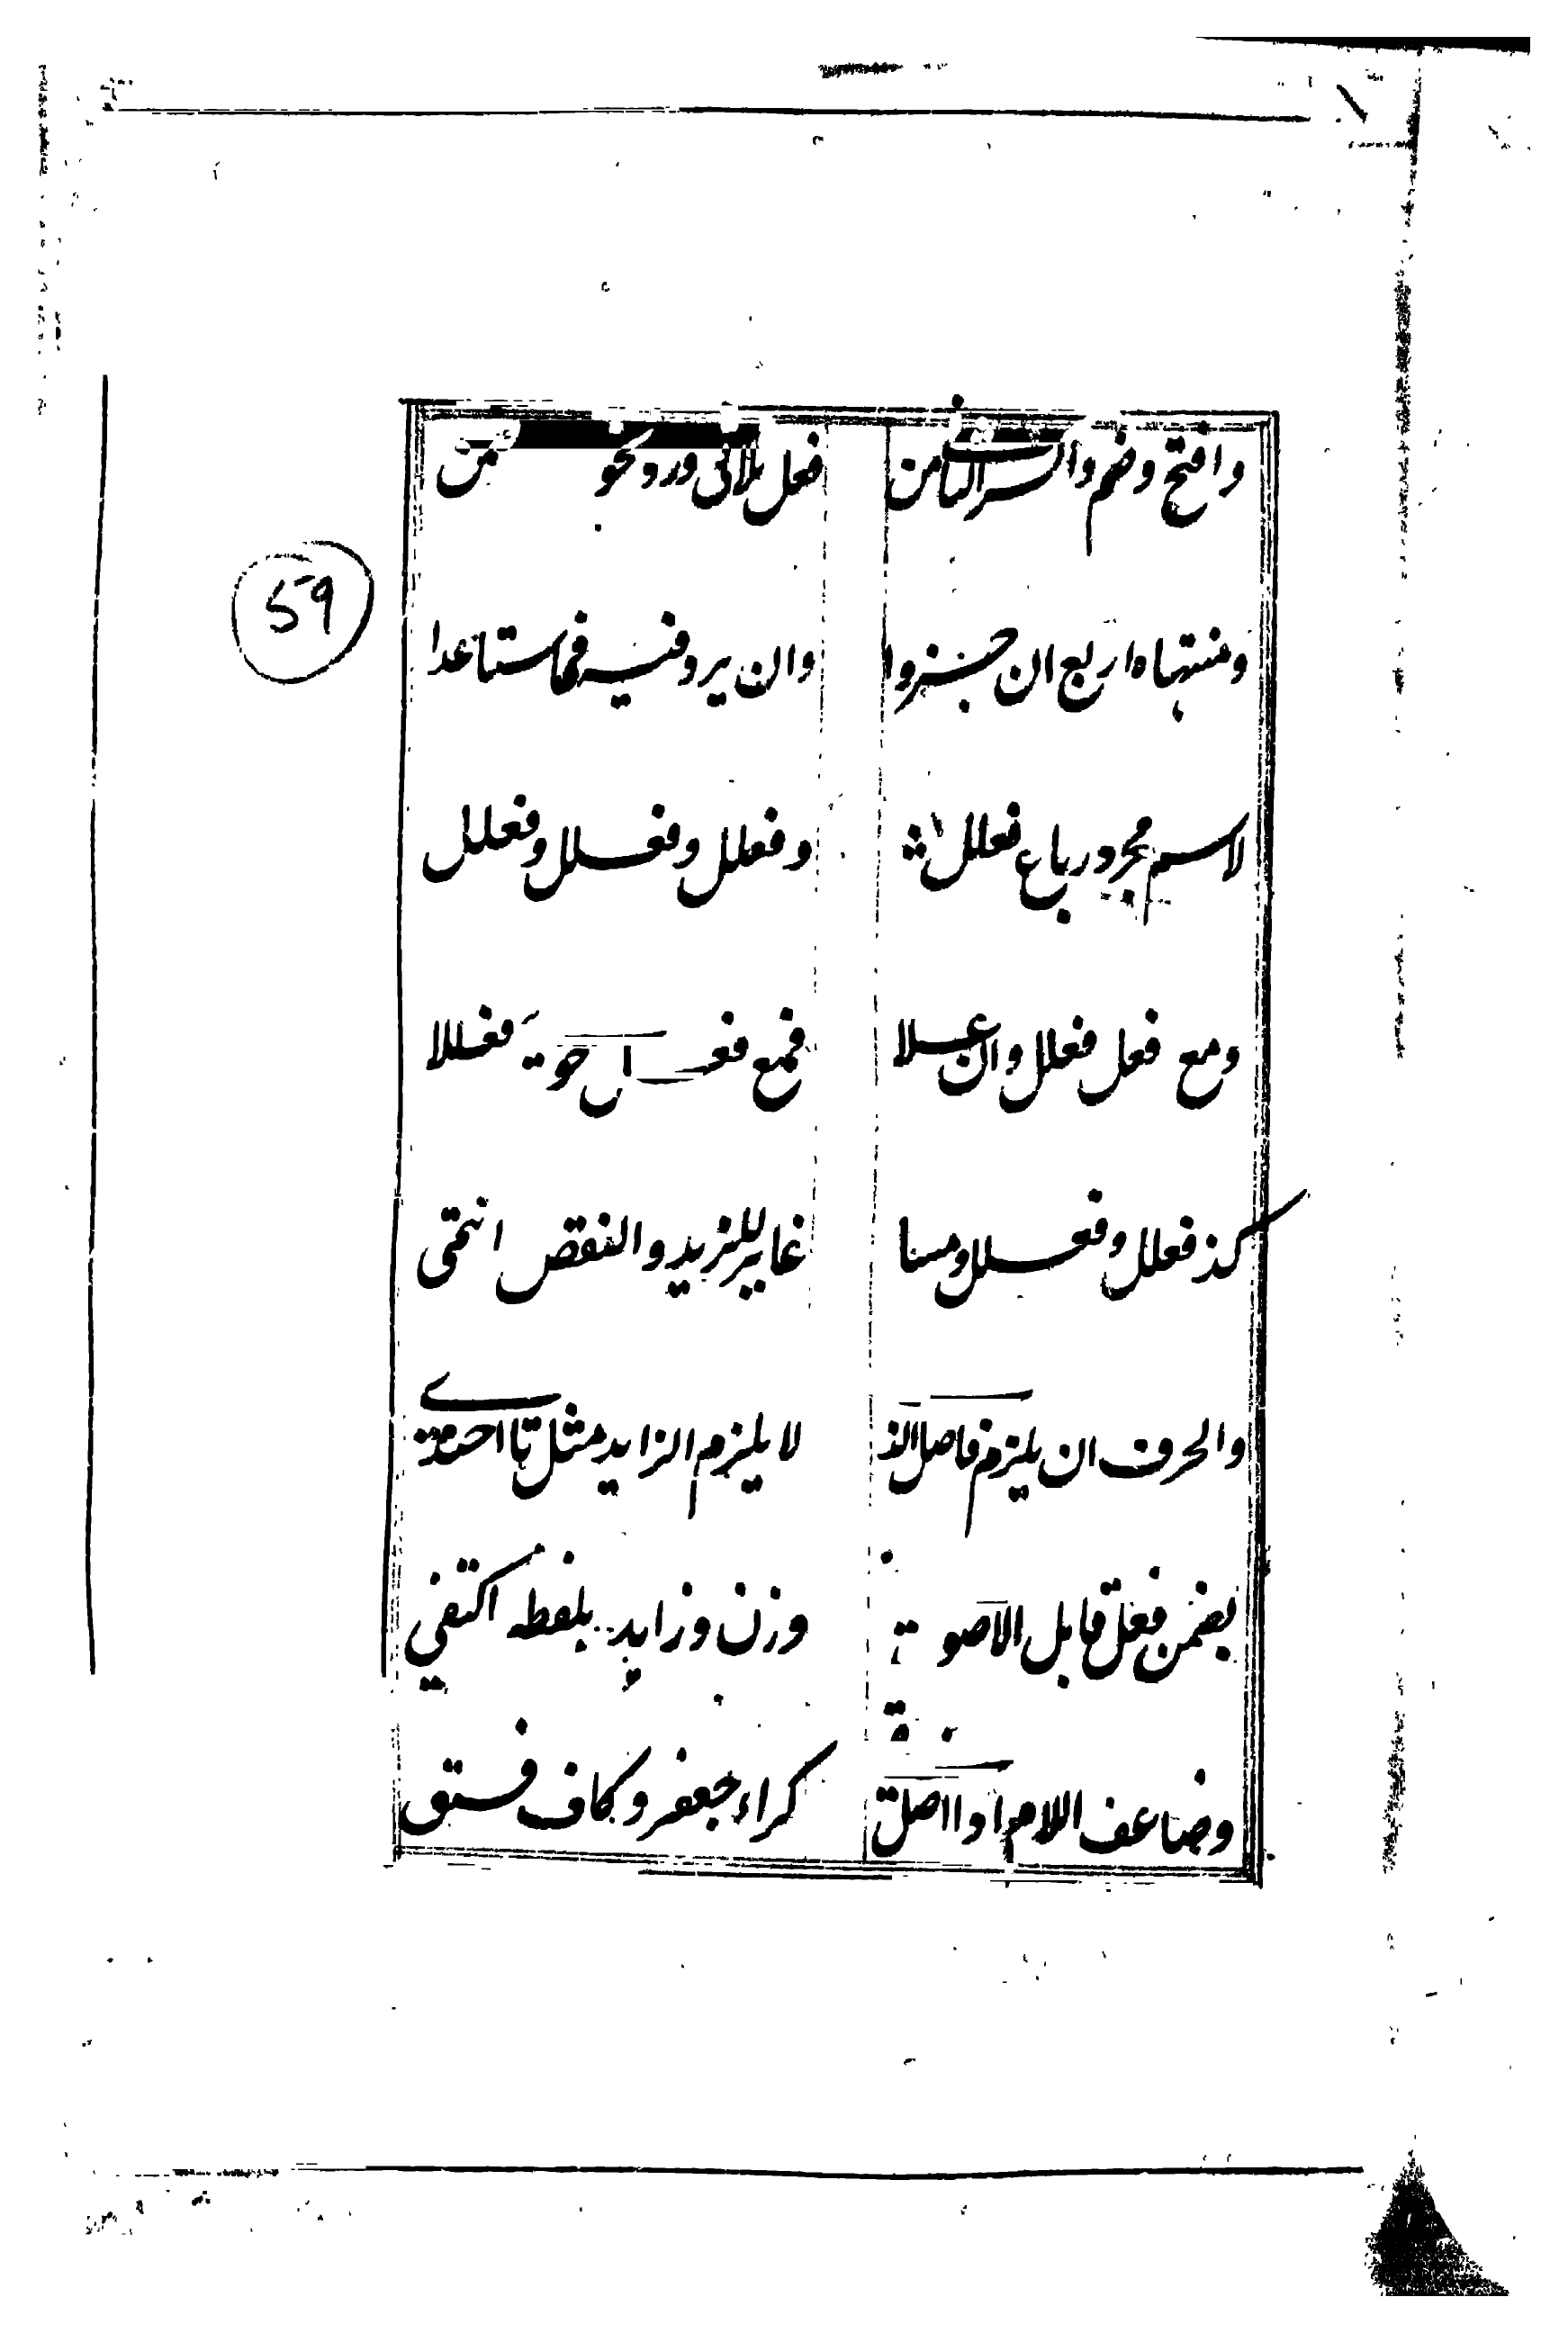 وافتح وضم واكسر الثاني من فعل ثلاثي وزد نحو ضمن
59
ومنتهاه اربع ان جردوا وان يزد فيه فما ستا عدا
لاسم مجرد رباع فعلل وفعلل وفعلل وفعلل
ومع فعل فعلل وان علا فمع فعلل حوى فعللا
كذا فعلل وفعلل وما غاير للزيد والنقص انتمى
والحرف ان يلزم فاصل والذي لا يلزم الزايد مثل تا احتذى
بضمن فعل قابل الاصول في وزن وزايد بلفظه اكتفي
وضاعف اللام اذا اصل بقي كراء جعفر وكاف فستق